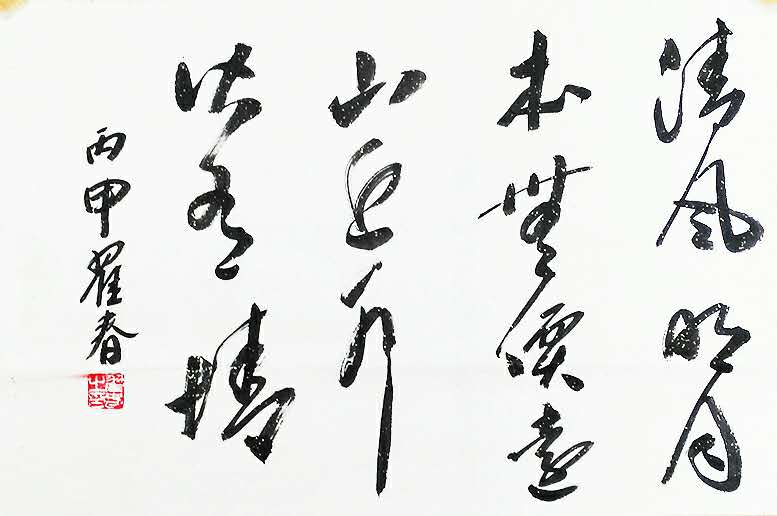 清風明月
本無價遠
山近水
皆有情
丙甲翟春